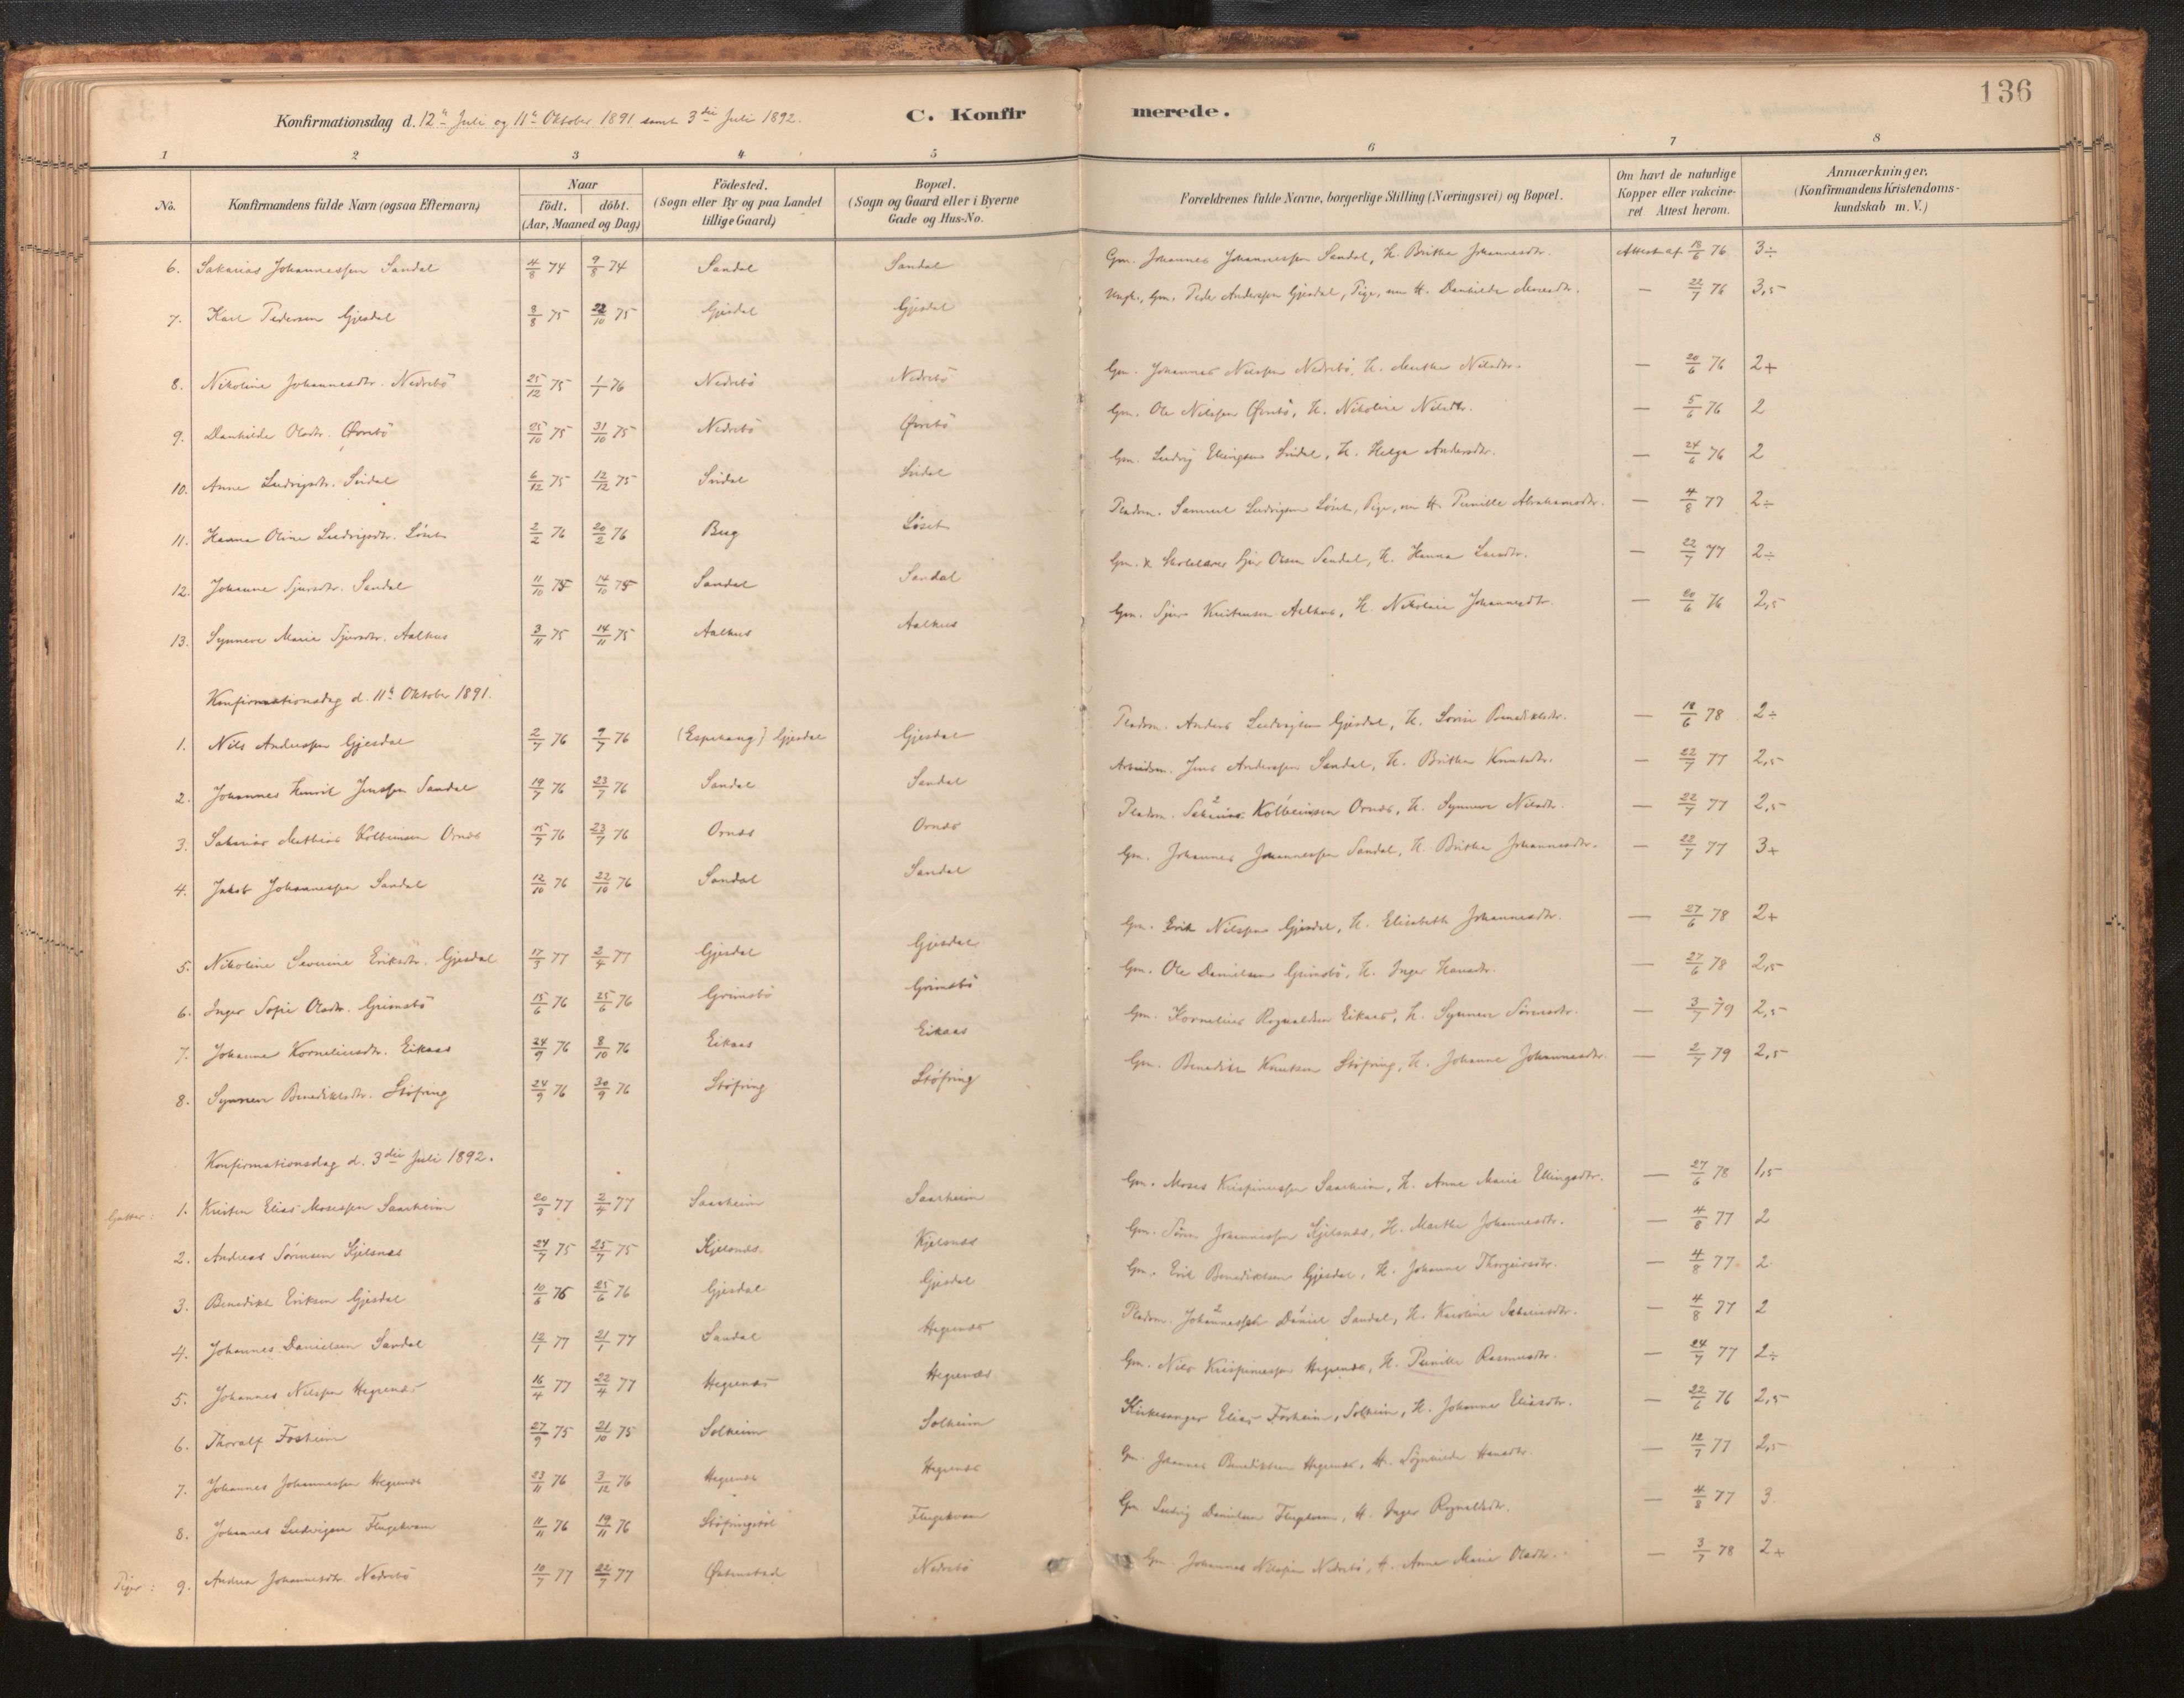 136
Konfirmationsdag d. 12te Juli og 11te Oktober 1891 samt 3die Juli 1892.
C. Konfirmerede.
1 2 3 4 5 6 7 8
No. Konfirmandens fulde Navn (ogsaa Efternavn) Naar födt. döbt. (Aar, Maaned og Dag) Födested. (Sogn eller By og paa Landet tillige Gaard) Bopæl. (Sogn og Gaard eller i Byerne Gade og Hus-No. Forældrenes fulde Navne, borgerlige Stilling (Næringsvei) og Bopæl. Om havt de naturlige Kopper eller vakcineret Attest herom. Anmærkninger. (Konfirmandens Kristendomskundskab m. V.)
6. Sakarias Johannessen Sandal 4/8 74 9/8 74 Sandal Sandal Gm. Johannes Johannessen Sandal, H. Brithe Johannesdtr. Attest af 18/6 76 3÷
7. Karl Pedersen Gjesdal 8/8 75 22/10 75 Gjesdal Gjesdal Ungk., Gm. Peder Andersen Gjesdal, Pige, nu H. Danhilde Mosesdtr. — 22/7 76 3,5
8. Nikoline Johannesdtr. Nedrebö 25/12 75 1/1 76 Nedrebö Nedrebö Gm. Johannes Nilssen Nedrebö, H. Marthe Nilsdtr. — 20/6 76 2+
9. Danhilde Olsdtr. Övrebö 25/10 75 31/10 75 Nedrebö Övrebö Gm. Ole Nilssen Övrebö, H. Nikoline Nilsdtr. — 5/6 76 2
10. Anne Ludvigsdtr. Svidal 6/12 75 12/12 75 Svidal Svidal Gm. Ludvig Ellingsen Svidal, H. Helga Andersdtr. — 24/6 76 2
11. Hanna Oline Ludvigsdtr. Löset 2/2 76 20/2 76 Bug Löset Pladsm. Samuel Ludvigsen Löset, Pige, nu H. Pernille Abrahamsdtr. — 4/8 77 2÷
12. Johanne Sjursdtr. Sandal 11/10 75 14/10 75 Sandal Sandal Gm. & Skolelærer Sjur Olsen Sandal, H. Hanna Larsdtr. — 22/7 77 2÷
13. Synneve Marie Sjursdtr. Aalhus 3/11 75 14/11 75 Aalhus Aalhus Gm. Sjur Kristensen Aalhus, H. Nikoline Johannesdtr. — 20/6 76 2,5
Konfirmationsdag d. 11te Oktober 1891.
1. Nils Anderssen Gjesdal 2/7 76 9/7 76 (Espehaug) Gjesdal Gjesdal Pladsm. Anders Ludvigsen Gjesdal, H. Sörine Benediktsdtr. — 18/6 78 2÷
2. Johannes Henrik Jenssen Sandal 19/7 76 23/7 76 Sandal Sandal Arbeidsm. Jens Anderssen Sandal, H. Brithe Knutsdtr. — 22/7 77 2,5
3. Sakarias Mathias Kolbeinsen Ornæs 15/7 76 23/7 76 Ornæs Ornæs Pladsm. Sakarias Kolbeinsen Ornæs, H. Synneve Nilsdtr. — 22/7 77 2,5
4. Jakob Johannessen Sandal 12/10 76 22/10 76 Sandal Sandal Gm. Johannes Johannessen Sandal, H. Brithe Johannesdtr. — 22/7 77 3+
5. Nikoline Severine Eriksdtr. Gjesdal 17/3 77 2/4 77 Gjesdal Gjesdal Gm. Erik Nilssen Gjesdal, H. Elisabeth Johannesdtr. — 27/6 78 2+
6. Inger Sofie Olsdtr. Grimsbö 15/6 76 25/6 76 Grimsbö Grimsbö Gm. Ole Danielsen Grimsbö, H. Inger Hansdtr. — 27/6 78 2,5
7. Johanne Korneliusdtr. Eikaas 24/9 76 8/10 76 Eikaas Eikaas Gm. Kornelius Rognaldsen Eikaas, H. Synneve Sörensdtr. — 3/7 79 2,5
8. Synneve Benediktsdtr. Stöfring 24/9 76 30/9 76 Stöfring Stöfring Gm. Benedikt Knutsen Stöfring, H. Johanne Johannesdtr. — 2/7 79 2,5
Konfirmationsdag d. 3die Juli 1892.
Gutter: 1. Kristen Elias Mosessen Saarheim 20/3 77 2/4 77 Saarheim Saarheim Gm. Moses Krispinussen Saarheim, H. Anne Marie Ellingsdtr. — 27/6 78 1,5
2. Andreas Sörensen Kjelsnæs 24/7 75 25/7 75 Kjelsnæs Kjelsnæs Gm. Sören Johannessen Kjelsnæs, H. Marthe Johannesdtr. — 4/8 77 2
3. Benedikt Eriksen Gjesdal 10/6 76 25/6 76 Gjesdal Gjesdal Gm. Erik Benediktsen Gjesdal, H. Johanne Thorgeirsdtr. — 4/8 77 2
4. Johannes Danielsen Sandal 12/1 77 21/1 77 Sandal Hegrenæs Pladsm. Johannessen Daniel Sandal, H. Karoline Sakariasdtr. — 4/8 77 2
5. Johannes Nilssen Hegrenæs 16/4 77 22/4 77 Hegrenæs Hegrenæs Gm. Nils Krispinussen Hegrenæs, H. Pernille Rasmusdtr. — 24/7 77 2÷
6. Thoralf Fosheim 27/9 75 21/10 75 Solheim Solheim Kirkesanger Elias Fosheim, Solheim, H. Johanne Eliasdtr. — 22/6 76 2,5
7. Johannes Johannessen Hegrenæs 23/11 76 3/12 76 Hegrenæs Hegrenæs Gm. Johannes Benediktsen Hegrenæs, H. Hansdtr. — 12/7 77 2,5
8. Johannes Ludvigsen Flugekvam 11/11 76 19/11 76 Stöfringstöl Flugekvam Gm. Ludvig Danielsen Flugekvam, H. Inger Rognaldsdtr. — 4/8 77 3
Piger: 9. Andrea Johannesdtr. Nedrebö 10/7 77 22/7 77 Nedrebö Gm. Johannes Nilssen Nedrebö, H. Anne Marie Olsdtr. — 3/7 78 2+